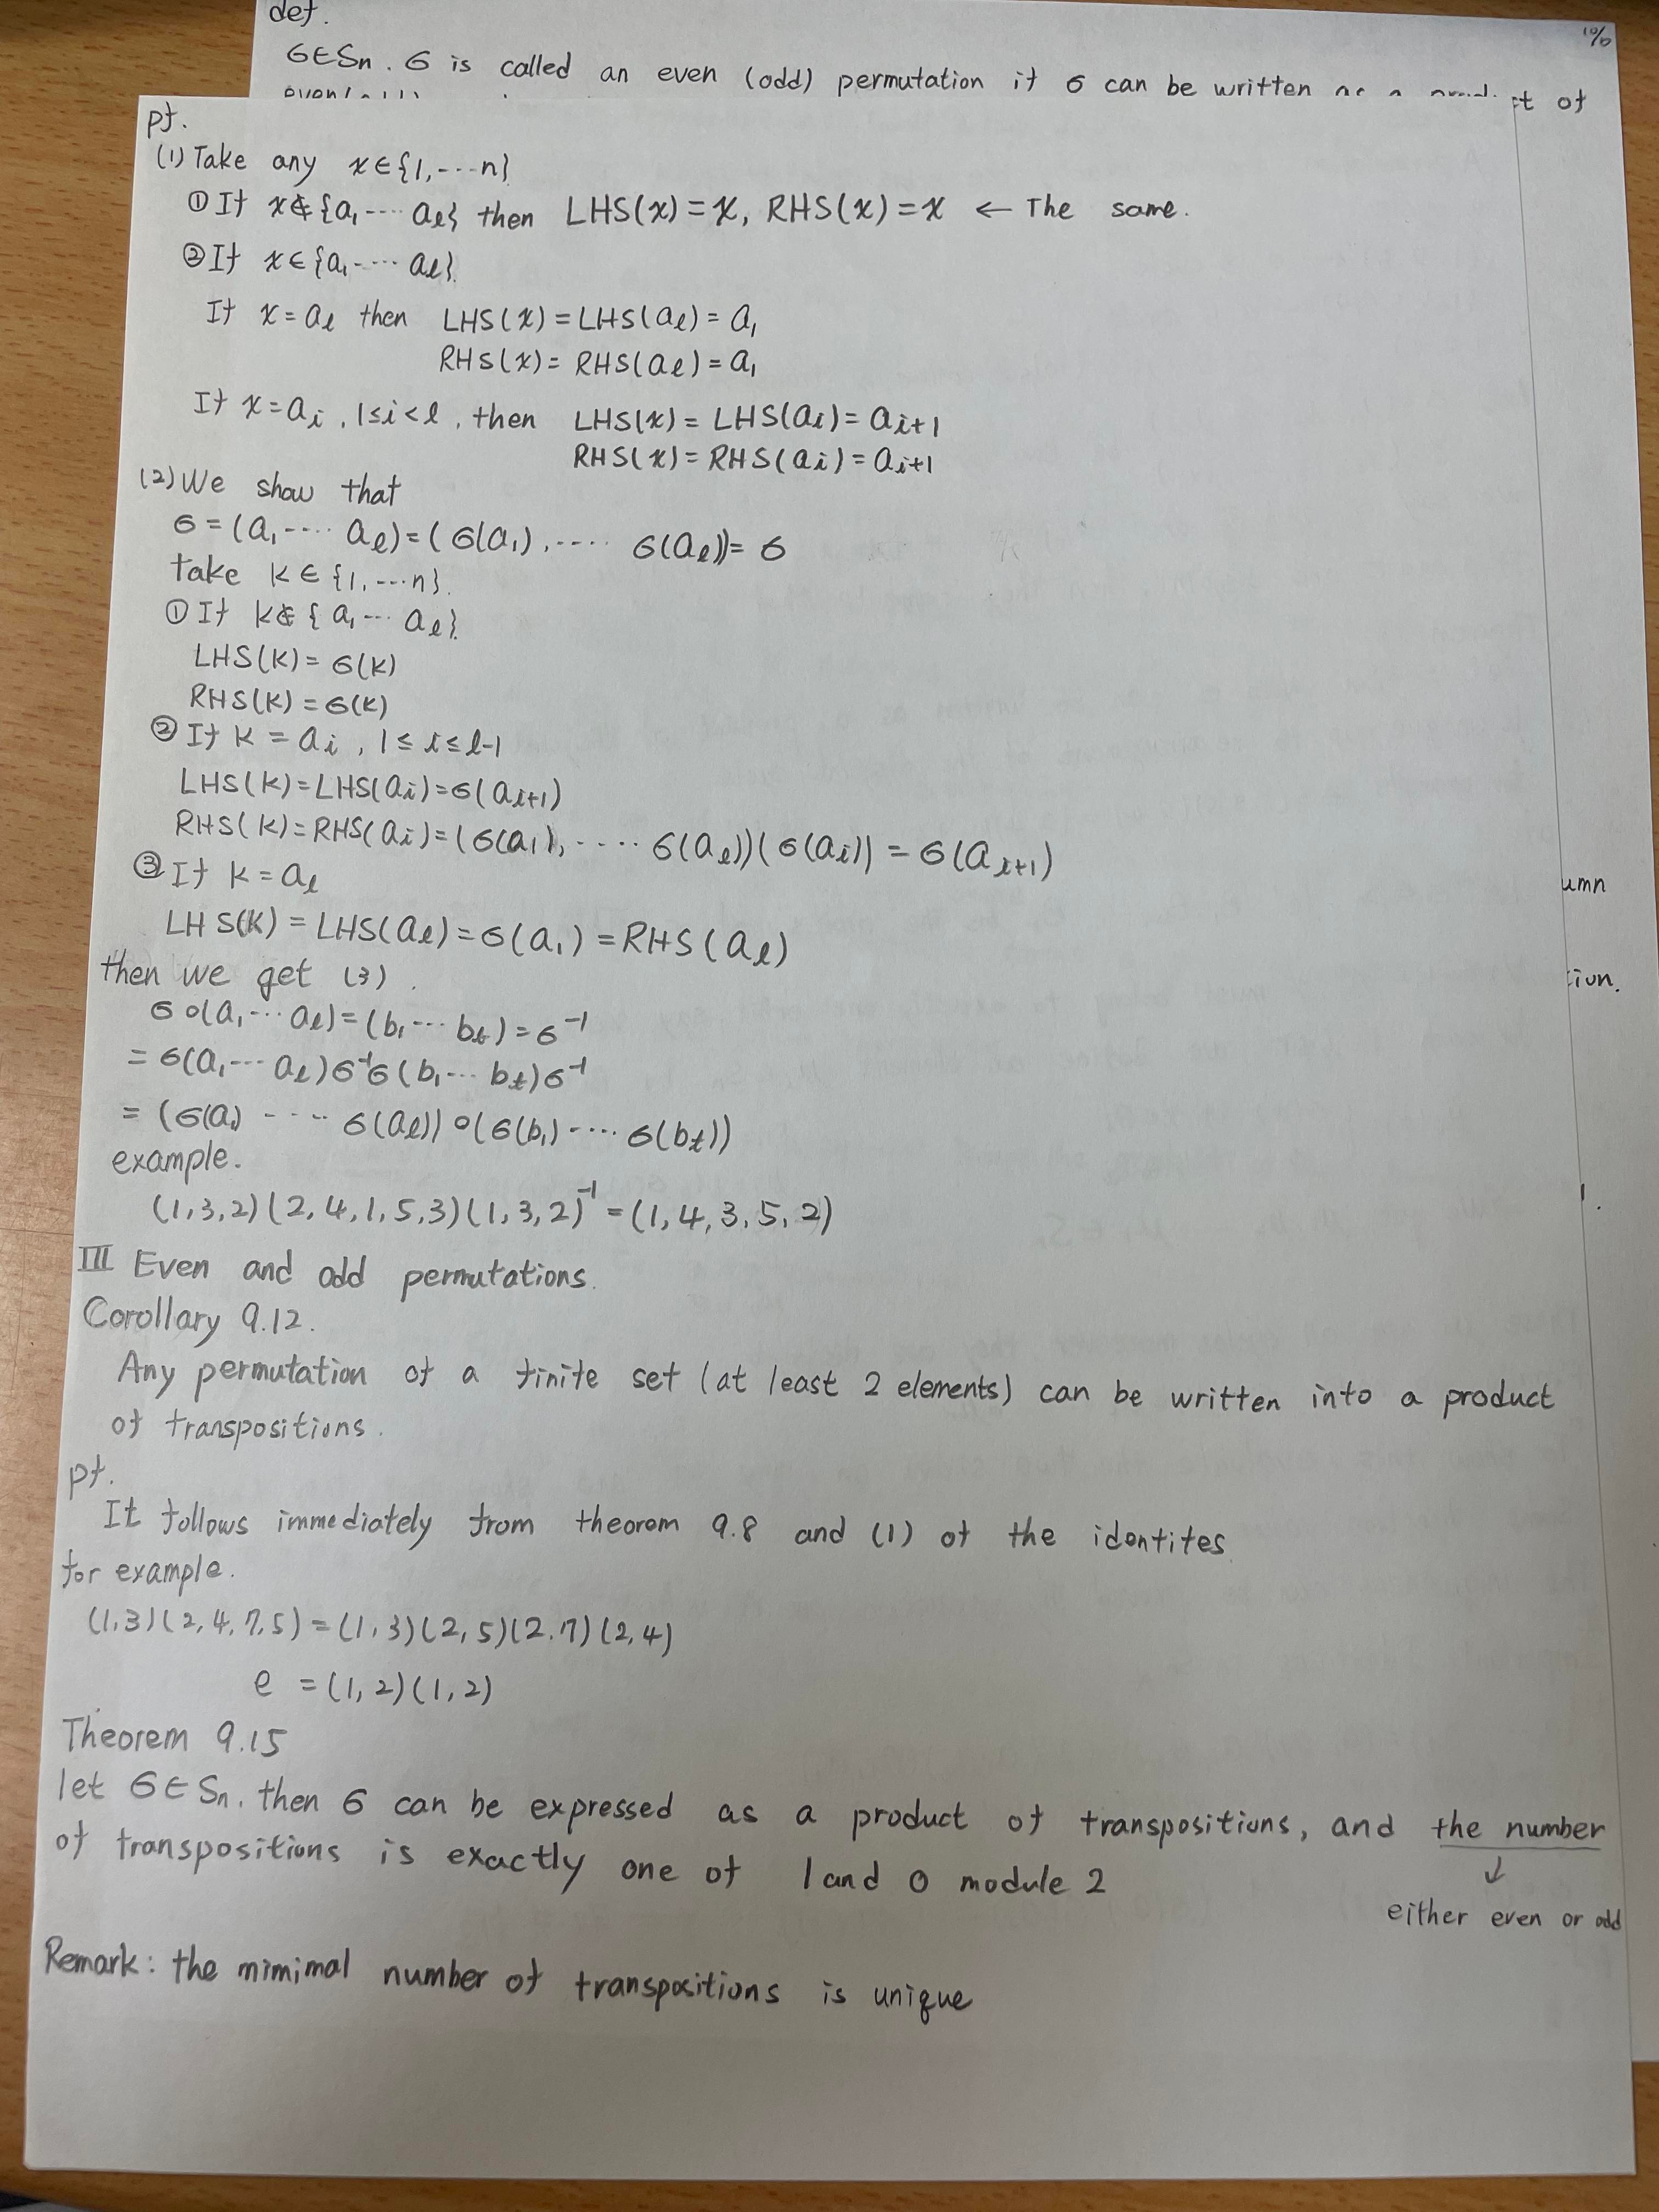 def.
σ∈Sn. σ is called an even (odd) permutation if σ can be written as a product of
10/6
pf.
(1) Take any x∈{1,---n}
① If x∉{a1---- aℓ} then LHS(x)=x, RHS(x)=x ← The same.
② If x∈{a1---- aℓ}.
If x=aℓ then LHS(x)=LHS(aℓ)=a1
RHS(x)=RHS(aℓ)=a1
If x=ai, 1≤i<ℓ, then LHS(x)=LHS(ai)=ai+1
RHS(x)=RHS(ai)=ai+1
(2) We show that
σ=(a1---- aℓ)=(σ(a1),---- σ(aℓ))=σ
take k∈{1,---n}.
① If k∉{a1--- aℓ}.
LHS(k)=σ(k)
RHS(k)=σ(k)
② If k=ai, 1≤i≤ℓ-1
LHS(k)=LHS(ai)=σ(ai+1)
RHS(k)=RHS(ai)=(σ(a1),---- σ(aℓ))(σ(ai))=σ(ai+1)
③ If k=aℓ
LHS(k)=LHS(aℓ)=σ(a1)=RHS(aℓ)
then we get (3).
σ∘(a1--- aℓ)=(b1--- bt)=σ⁻¹
=σ(a1--- aℓ)σ⁻¹σ(b1--- bt)σ⁻¹
=(σ(a1) ---- σ(aℓ))∘(σ(b1)---- σ(bt))
example.
(1,3,2)(2,4,1,5,3)(1,3,2)⁻¹=(1,4,3,5,2)
III Even and odd permutations.
Corollary 9.12.
Any permutation of a finite set (at least 2 elements) can be written into a product
of transpositions.
pf.
It follows immediately from theorem 9.8 and (1) of the identites
for example.
(1,3)(2,4,7,5)=(1,3)(2,5)(2.7)(2,4)
e =(1,2)(1,2)
Theorem 9.15
let σ∈Sn. then σ can be expressed as a product of transpositions, and the number
of transpositions is exactly one of 1 and 0 module 2
↓
either even or odd
Remark: the mimimal number of transpositions is unique